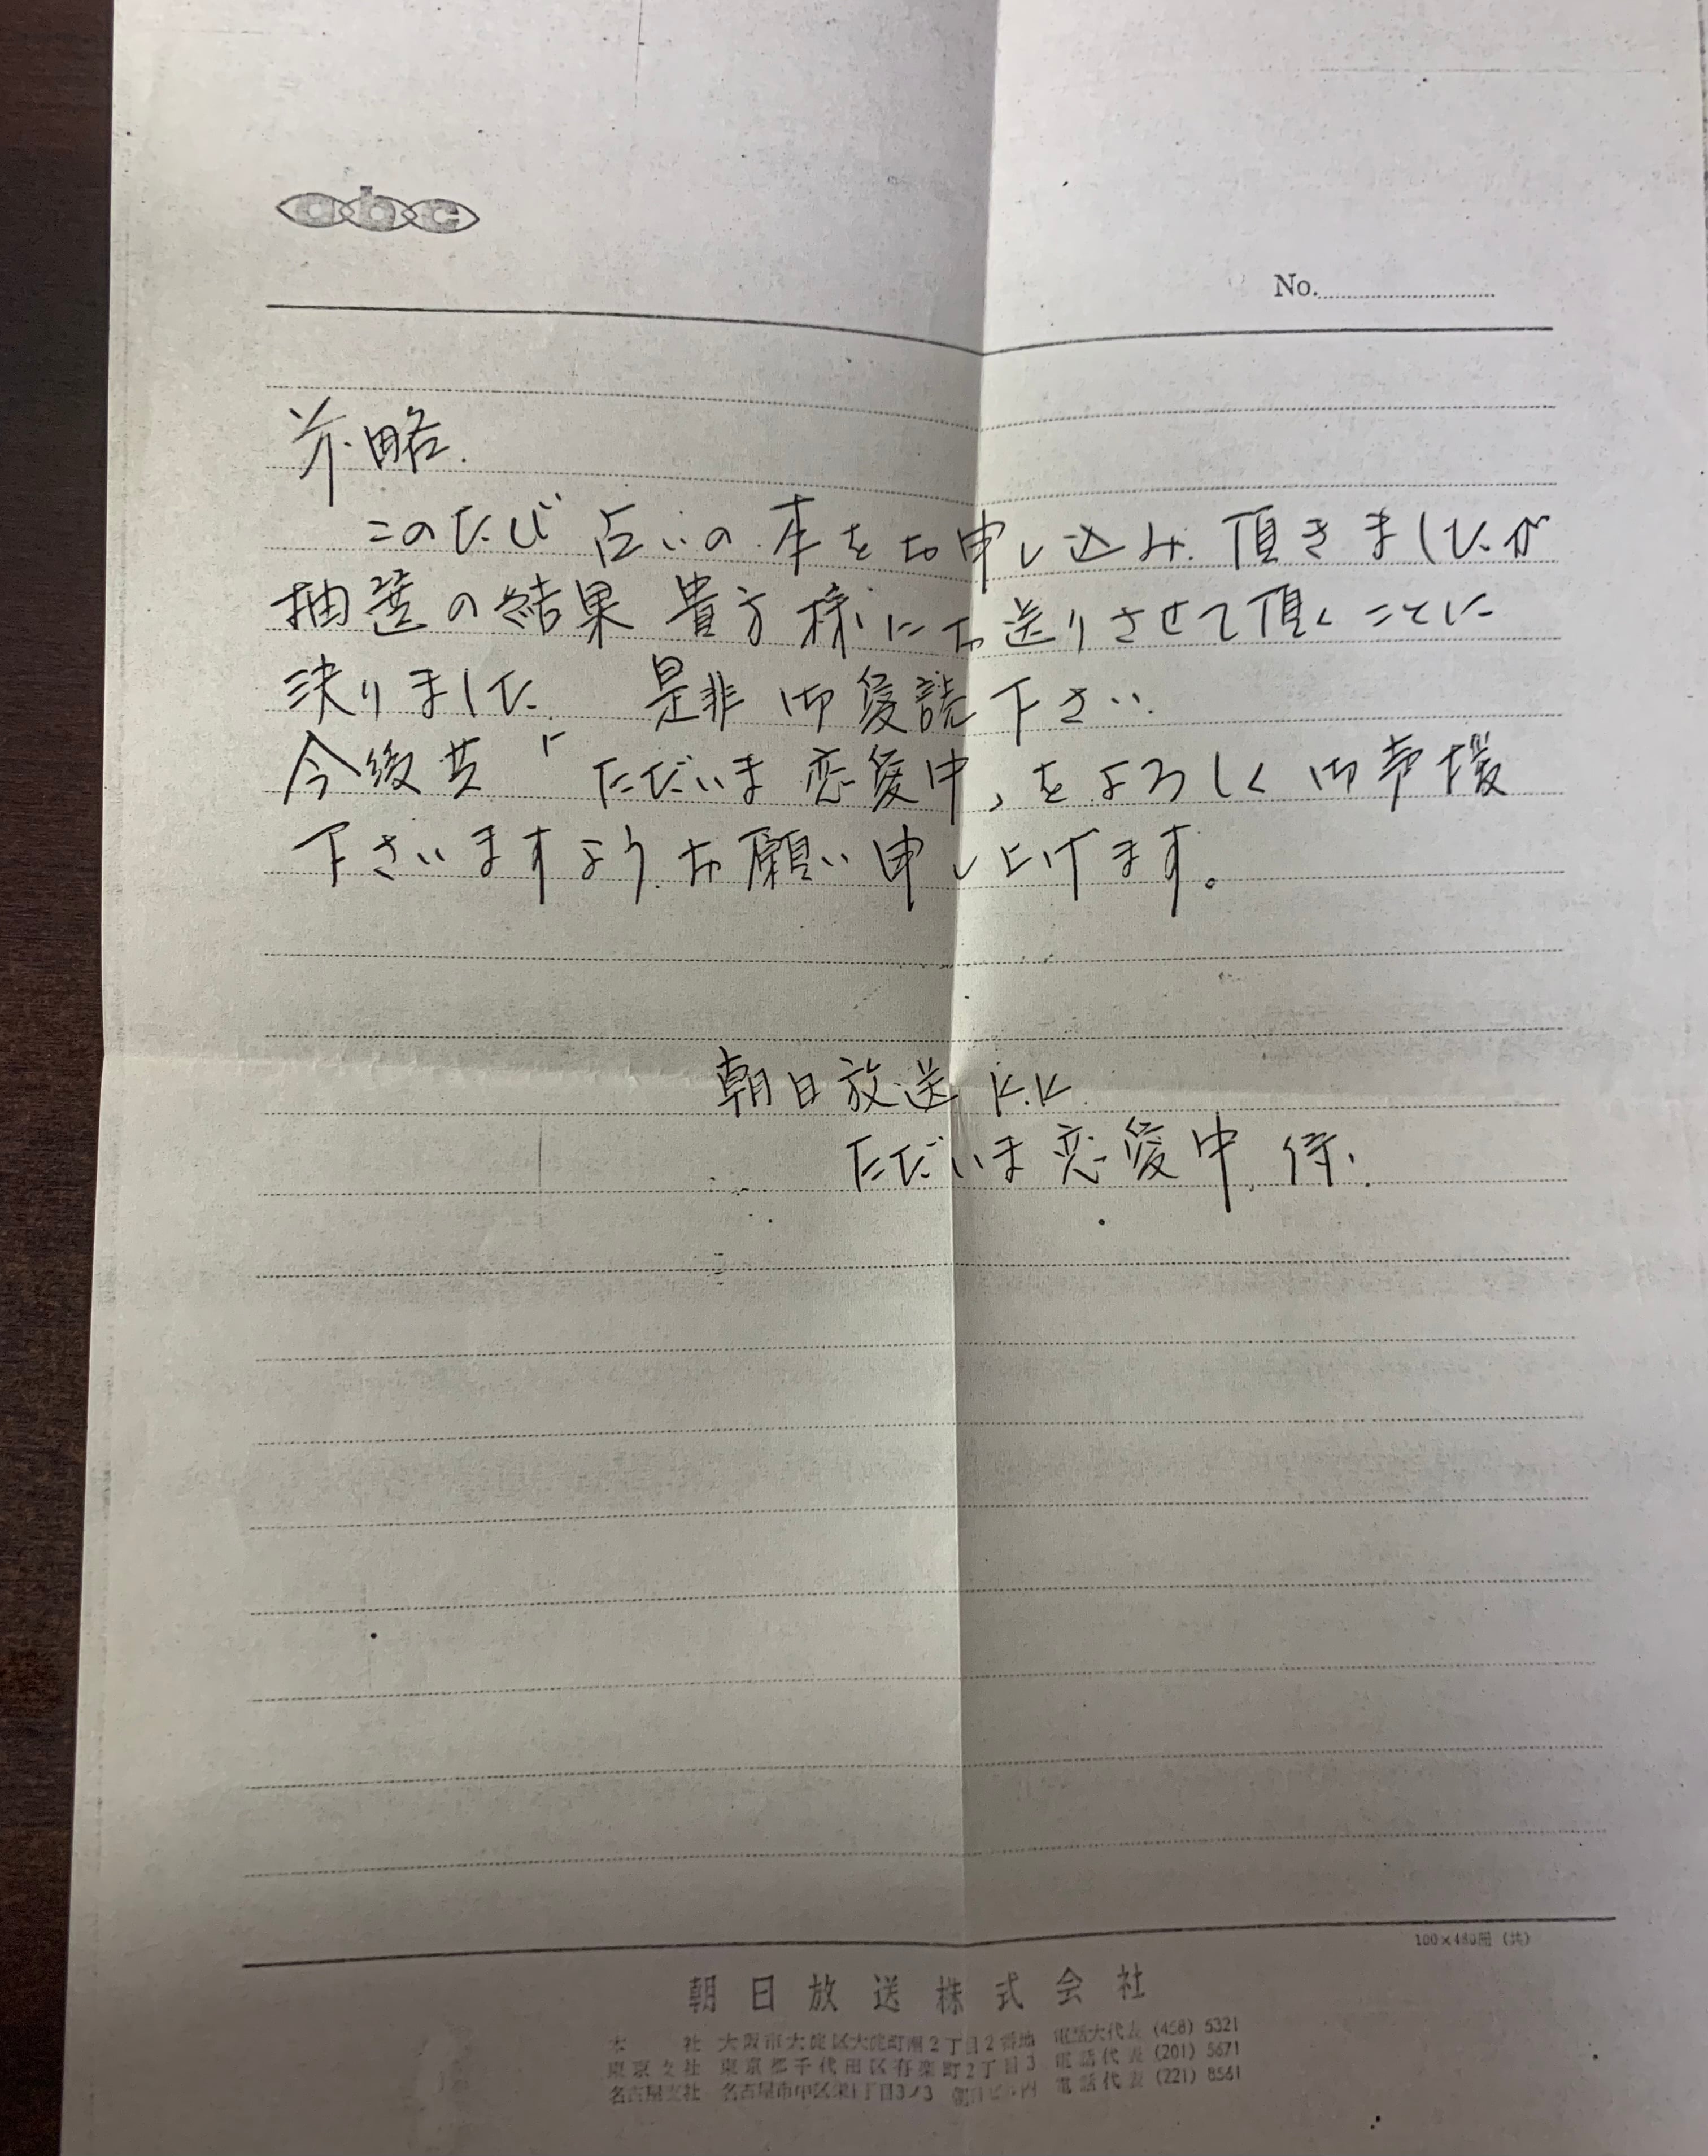 abc
No.
前略.
このたび 占いの本をお申し込み頂きましたが
抽選の結果 貴方様にお送りさせて頂くことに
決りました. 是非 御愛読下さい.
今後共「ただいま恋愛中」をよろしく御声援
下さいますようお願い申し上げます。
朝日放送 K.K.
ただいま恋愛中 係.
100×480冊 (共)
朝日放送株式会社
本社 大阪市大淀区大淀町南2丁目2番地 電話大代表 (458) 5321
東京支社 東京都千代田区有楽町2丁目3 電話代表 (201) 5671
名古屋支社 名古屋市中区栄1丁目3ノ3 朝日ビル内 電話代表 (221) 8561